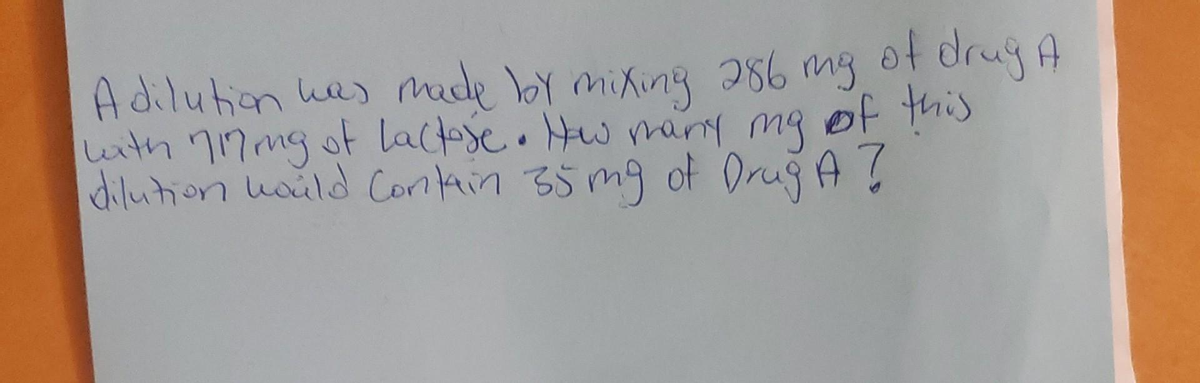 A dilution was made by mixing 286 mg of drug A
with 717 mg of Lactose. How many mg of this
dilution would Contain 35 mg of Drug A?